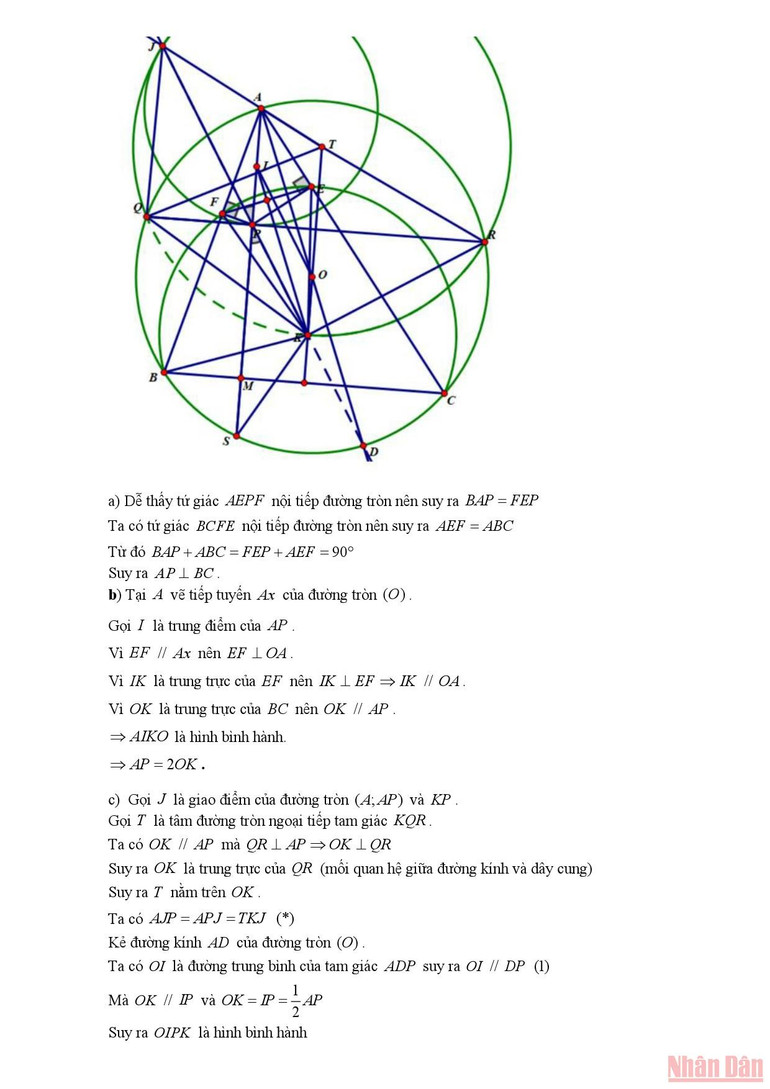 J
A
T
I
E
F
Q
P
R
O
K
B
M
C
S
D
a) Dễ thấy tứ giác AEPF nội tiếp đường tròn nên suy ra BAP = FEP
Ta có tứ giác BCFE nội tiếp đường tròn nên suy ra AEF = ABC
Từ đó BAP + ABC = FEP + AEF = 90°
Suy ra AP ⊥ BC .
b) Tại A vẽ tiếp tuyến Ax của đường tròn (O) .
Gọi I là trung điểm của AP .
Vì EF // Ax nên EF ⊥ OA .
Vì IK là trung trực của EF nên IK ⊥ EF ⇒ IK // OA .
Vì OK là trung trực của BC nên OK // AP .
⇒ AIKO là hình bình hành.
⇒ AP = 2OK .
c) Gọi J là giao điểm của đường tròn (A; AP) và KP .
Gọi T là tâm đường tròn ngoại tiếp tam giác KQR .
Ta có OK // AP mà QR ⊥ AP ⇒ OK ⊥ QR
Suy ra OK là trung trực của QR (mối quan hệ giữa đường kính và dây cung)
Suy ra T nằm trên OK .
Ta có AJP = APJ = TKJ (*)
Kẻ đường kính AD của đường tròn (O) .
Ta có OI là đường trung bình của tam giác ADP suy ra OI // DP (1)
Mà OK // IP và OK = IP = 1/2 AP
Suy ra OIPK là hình bình hành
Nhân Dân